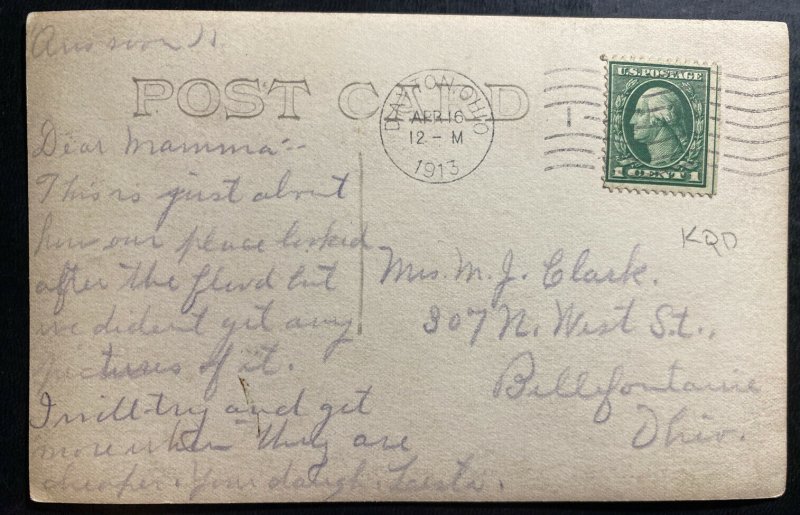 Ans soon
POST CARD
DAYTON, OHIO
APR 16
12 - M
1913
1
U.S. POSTAGE
1 CENT 1
KQD
Dear Mamma:-
This is just about
how our place looked
after the flood but
we diden't get any
pictures of it.
I will try and get
more when they are
cheaper. Your daugh.
Mrs. M. J. Clark.
307 N. West St.,
Bellefontaine
Ohio.